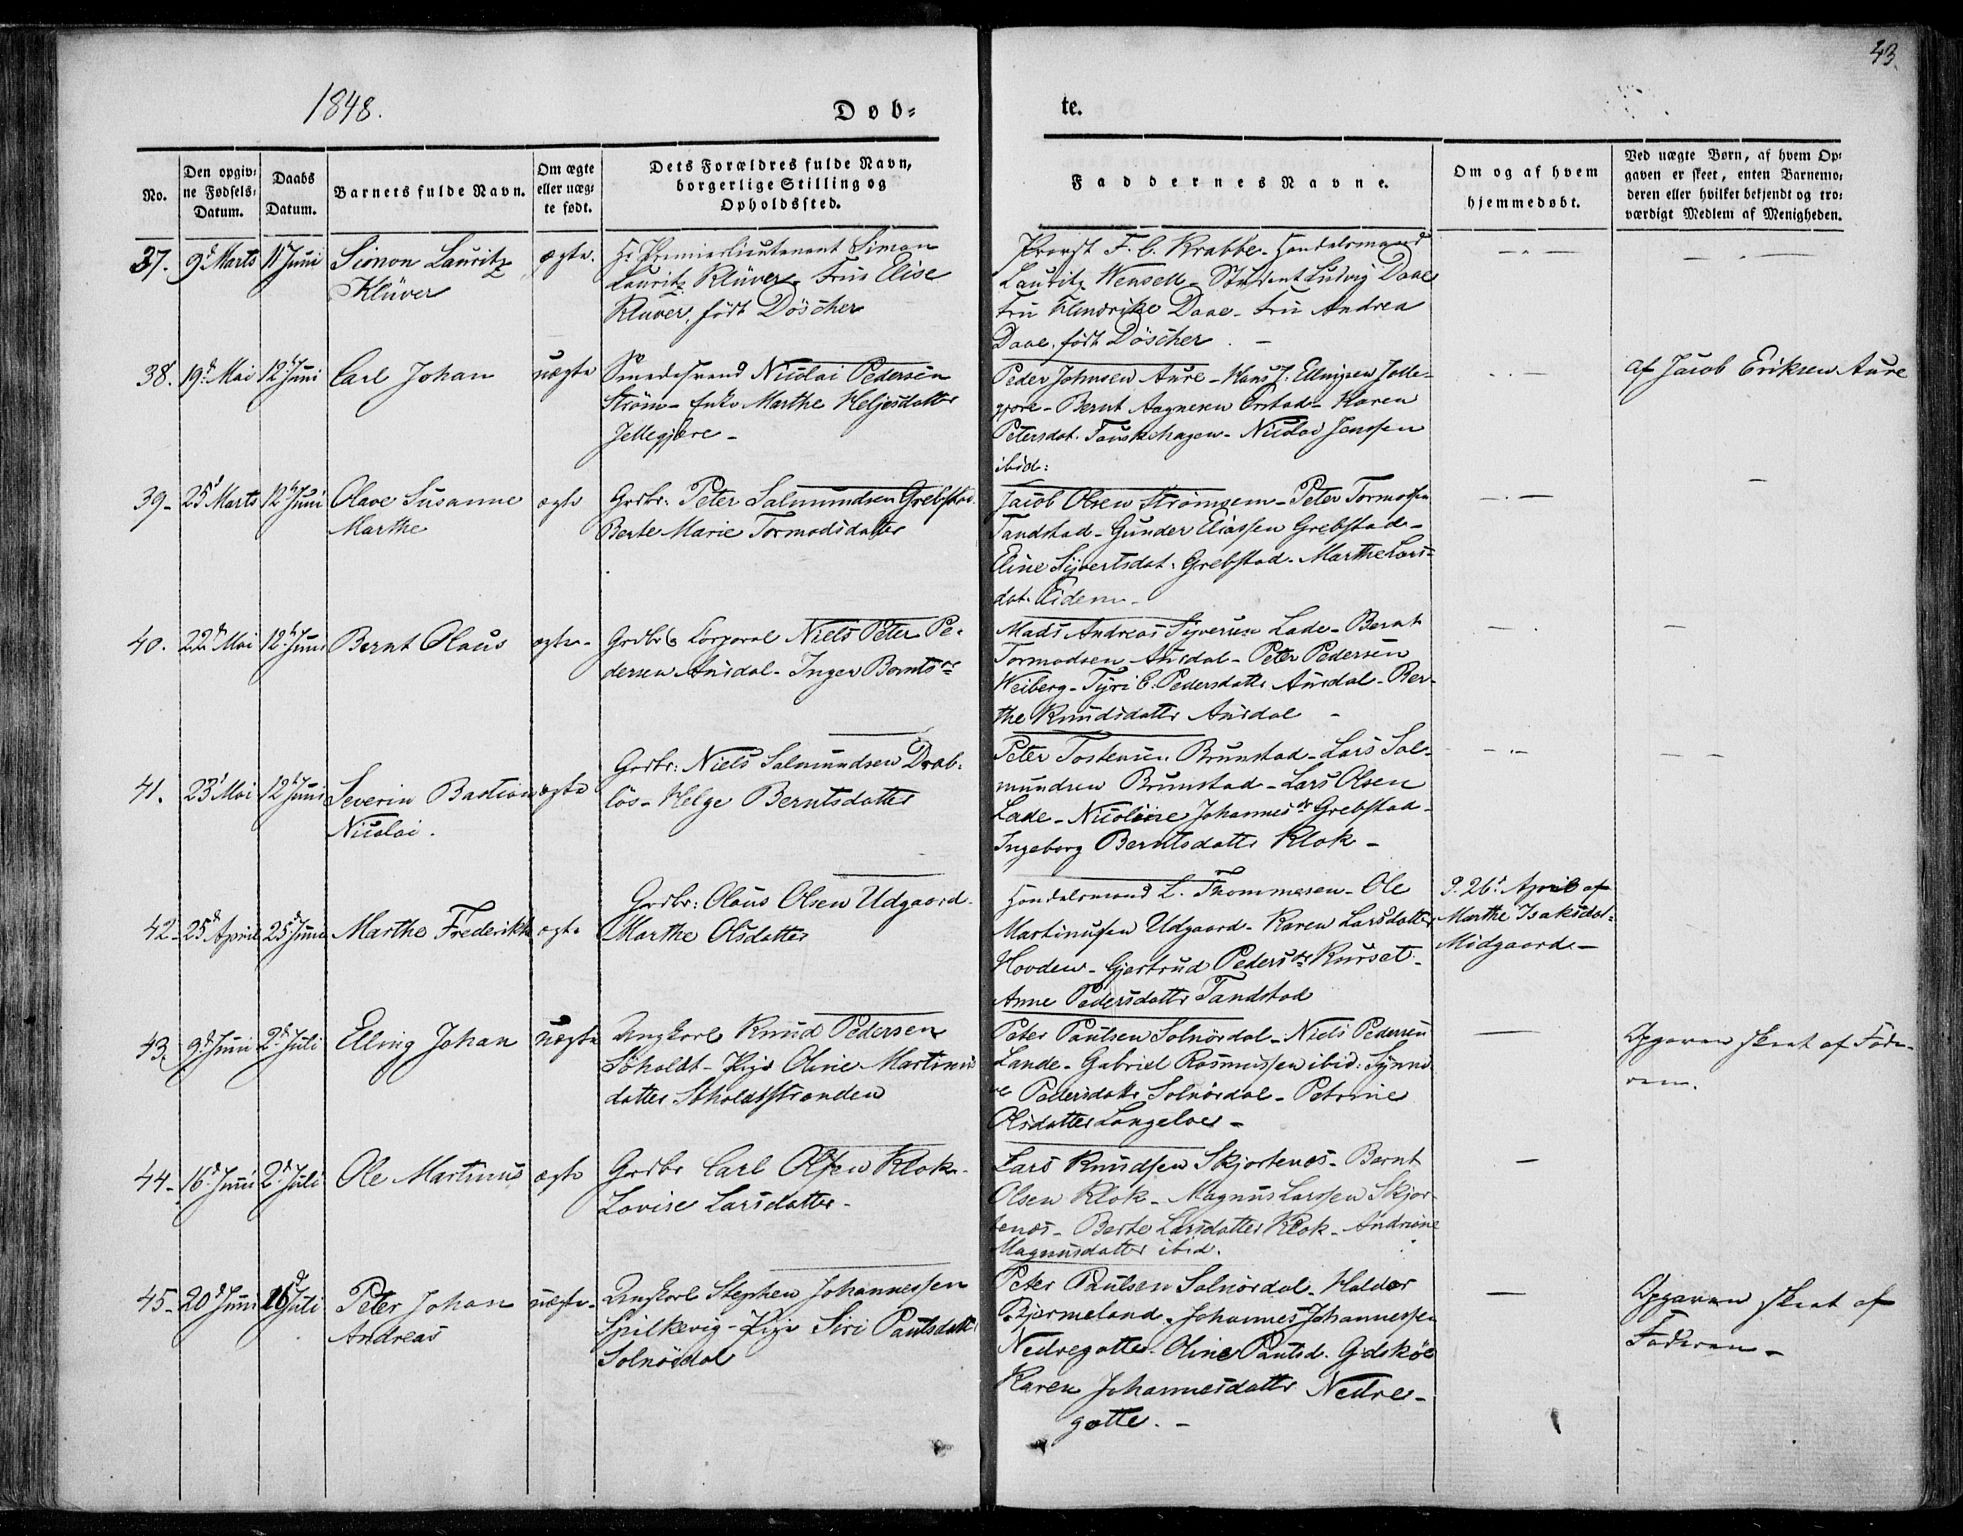 1848.
Døb-
te.
43.
No.
Den opgiv-
ne Fødsels-
Datum.
Daabs
Datum.
Barnets fulde Navn.
Om ægte
eller uæg-
te født.
Dets Forældres fulde Navn,
borgerlige Stilling og
Opholdssted.
Faddernes Navne.
Om og af hvem
hjemmedøbt.
Ved uægte Børn, af hvem Op-
gaven er skeet, enten Barnemo-
deren eller hvilket bekjendt og tro-
værdigt Medlem af Menigheden.
37. 9d Marts 11 Juni Simon Lauritz
Klüver
ægte.
Hr Premierlieutenant Simon
Lauritz Klüver - Frue Elise
Klüver, født Döscher
Provst F. C. Krabbe - Handelsmand
Lauritz Wensell - Student Ludvig Daae
Fru Hendrike Daae - Fru Andrea
Daae, født Döscher. -
38. 19d Mai 12d Juni Carl Johan uægte
Smedesvend Nicolai Pedersen
Strøm - Enke Marthe Heljesdatter
Jellegjære -
Peder Johnsen Aure - Hans J. Ellingsen Jelle-
gjere - Bernt Aagnesen Orstad - Karen
Petersdat. - Nicolai Jensen
ibid:
af Jacob Eriksen Aure
39 - 25d Marts 12d Juni Olave Susanne
Marthe
ægte
Grdbr: Peter Salmundsen Grebstad
Berte Marie Tormodsdatter
Jacob Olsen Strømsem - Peter Tormodsen
Tandstad - Gunder Eliassen Grebstad -
Eline Syvertsdat: Grebstad - Marthe Lars-
dat: Eidem -
40. 22d Mai 12d Juni Bernt Olaus ægte -
Grdbr & Corporal Niels Peter Pe-
dersen Aursdal - Inger Bernts dr
Mads Andreas Syversen Lade - Bernt
Tormodsen Aursdal - Peter Pedersen
Weiberg - Tyri E. Pedersdatter Aursdal - Ber-
the Knudsdatter Aursdal -
41. 23d Mai 12d Juni Severin Bastian
Nicolai.
ægte
Grdbr: Niels Salmundsen Drab-
løs - Helge Berntsdatter
Peter Tostensen Brunstad - Lars Sal-
mundsen Brunstad - Lars Olsen
Lade - Nicoline Johannes dr Grebstad -
Ingeborg Berntsdatter Klok -
42 - 25d April 25d Juni Marthe Frederikke ægte
Grdbr: Olaus Olsen Udgaard -
Marthe Olsdatter
Handelsmand L. Thommesen - Ole
Martinussen Udgaard - Karen Larsdatter
Hovden - Gjertrud Peders dr Kurset -
Anne Pedersdatter Tandstad
D. 26d April af
Marthe Isaksdat-
Midgaard. -
43. 9d Juni 2d Juli Elling Johan uægte
Ungkarl Knud Pedersen
Søholdt - Pige Oline Martinus
datter Søholdtstranden
Peter Paulsen Solnørdal - Niels Pedersen
Lande - Gabriel Rasmussen ibid: Synnø
ve Pedersdatr Solnørdal - Petrine
Olsdatter Langeloe -
Opgaven skeet af Fade-
ren.
44 - 16d Juni 2d Juli Ole Martinus ægte
Grdbr Carl Olsen Klok -
Lovise Larsdatter -
Lars Knudsen Skjortenes - Bernt
Olsen Klok - Magnus Larssen Skjor-
tenes - Berte Larsdatter Klok - Andrine
Magnusdatter ibid.
45 - 20d Juni 16d Juli Peter Johan
Andreas
uægte -
Ungkarl Stephen Johannessen
Spilkevig - Pige Siri Paulsdatter
Solnørdal
Peter Paulsen Solnørdal - Haldor
Bjermeland - Johannes Johannessen
Nedregotte - Oline Paulsd. Gidskøe
Karen Johannesdatter Nedre-
gotte. -
Opgaven skeet af
Faderen -